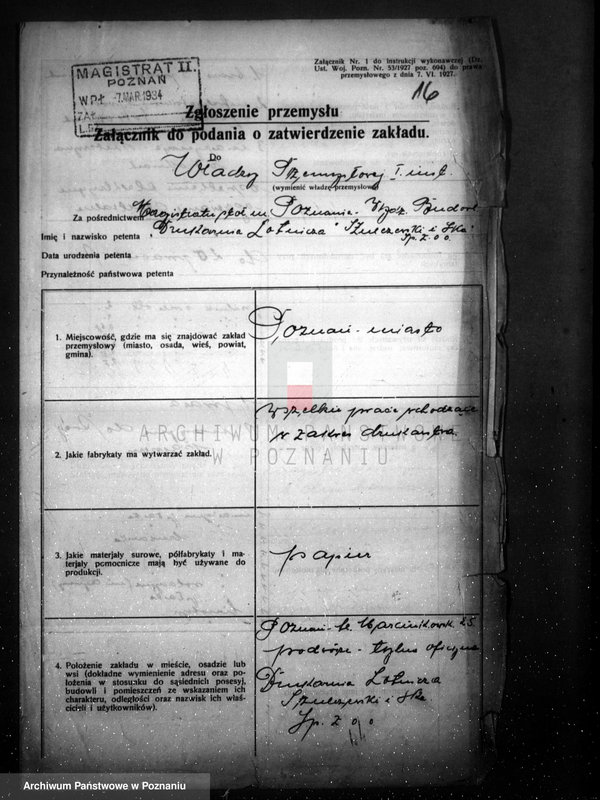 Załącznik Nr. 1 do instrukcji wykonawczej (Dz.
Ust. Woj. Pozn. Nr. 53/1927 poz. 694) do prawa
przemysłowego z dnia 7. VI. 1927.
MAGISTRAT II.
POZNAŃ
WPŁ. -7.MAR.1934
ZAŁ.
16
Zgłoszenie przemysłu
Załącznik do podania o zatwierdzenie zakładu.
Do
Władzy Przemysłowej I inst.
(wymienić władzę przemysłową)
Za pośrednictwem Magistratu stoł. m. Poznania. Wydz. Budowl.
Imię i nazwisko petenta „Drukarnia Lotnicza" Szulczewski i Ska
Sp. z o o.
Data urodzenia petenta
Przynależność państwowa petenta
1. Miejscowość, gdzie ma się znajdować zakład
przemysłowy (miasto, osada, wieś, powiat,
gmina).
Poznań - miasto
2. Jakie fabrykaty ma wytwarzać zakład.
Wszelkie prace wchodzące
w zakres drukarstwa.
3. Jakie materjały surowe, półfabrykaty i ma-
terjały pomocnicze mają być używane do
produkcji.
papier
4. Położenie zakładu w mieście, osadzie lub
wsi (dokładne wymienienie adresu oraz po-
łożenia w stosunku do sąsiednich posesyj,
budowli i pomieszczeń ze wskazaniem ich
charakteru, odległości oraz nazwisk ich właś-
cicieli i użytkowników).
Poznań - ul. Marcinkowsk. 25
podwórze - tylna oficyna
Drukarnia Lotnicza
Szulczewski i Ska
Sp. z o o
ARCHIWUM PAŃSTWOWE
W POZNANIU
Archiwum Państwowe w Poznaniu